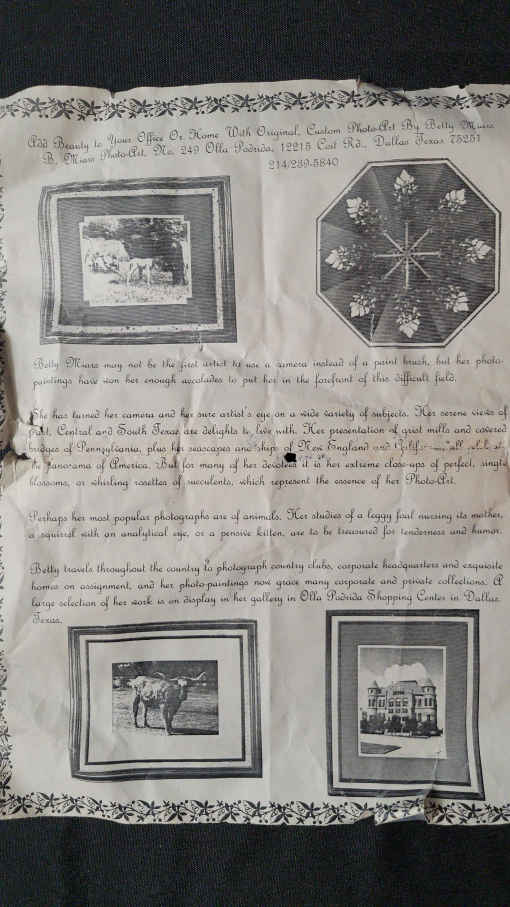 Add Beauty to Your Office Or Home With Original, Custom Photo-Art By Betty Miars
B. Miars Photo-Art, No. 249 Olla Podrida, 12215 Coit Rd., Dallas Texas 75251
214/239-5840
Betty Miars may not be the first artist to use a camera instead of a paint brush, but her photo-
paintings have won her enough accolades to put her in the forefront of this difficult field.
She has turned her camera and her sure artist's eye on a wide variety of subjects. Her serene views of
East, Central and South Texas are delights to live with. Her presentation of grist mills and covered
bridges of Pennsylvania, plus her seascapes and ships of New England and
the panorama of America. But for many of her devotees it is her extreme close-ups of perfect, single
blossoms, or whirling rosettes of succulents, which represent the essence of her Photo-Art.
Perhaps her most popular photographs are of animals. Her studies of a leggy foal nursing its mother,
a squirrel with an analytical eye, or a pensive kitten, are to be treasured for tenderness and humor.
Betty travels throughout the country to photograph country clubs, corporate headquarters and exquisite
homes on assignment, and her photo-paintings now grace many corporate and private collections. A
large selection of her work is on display in her gallery in Olla Podrida Shopping Center in Dallas,
Texas.